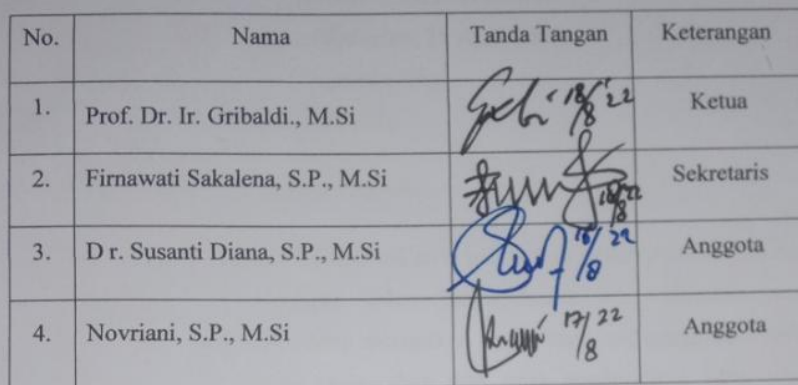 No. Nama Tanda Tangan Keterangan
1. Prof. Dr. Ir. Gribaldi., M.Si 18/8 '22 Ketua
2. Firnawati Sakalena, S.P., M.Si 18/8 '22 Sekretaris
3. D r. Susanti Diana, S.P., M.Si /8 22 Anggota
4. Novriani, S.P., M.Si 17/8 22 Anggota